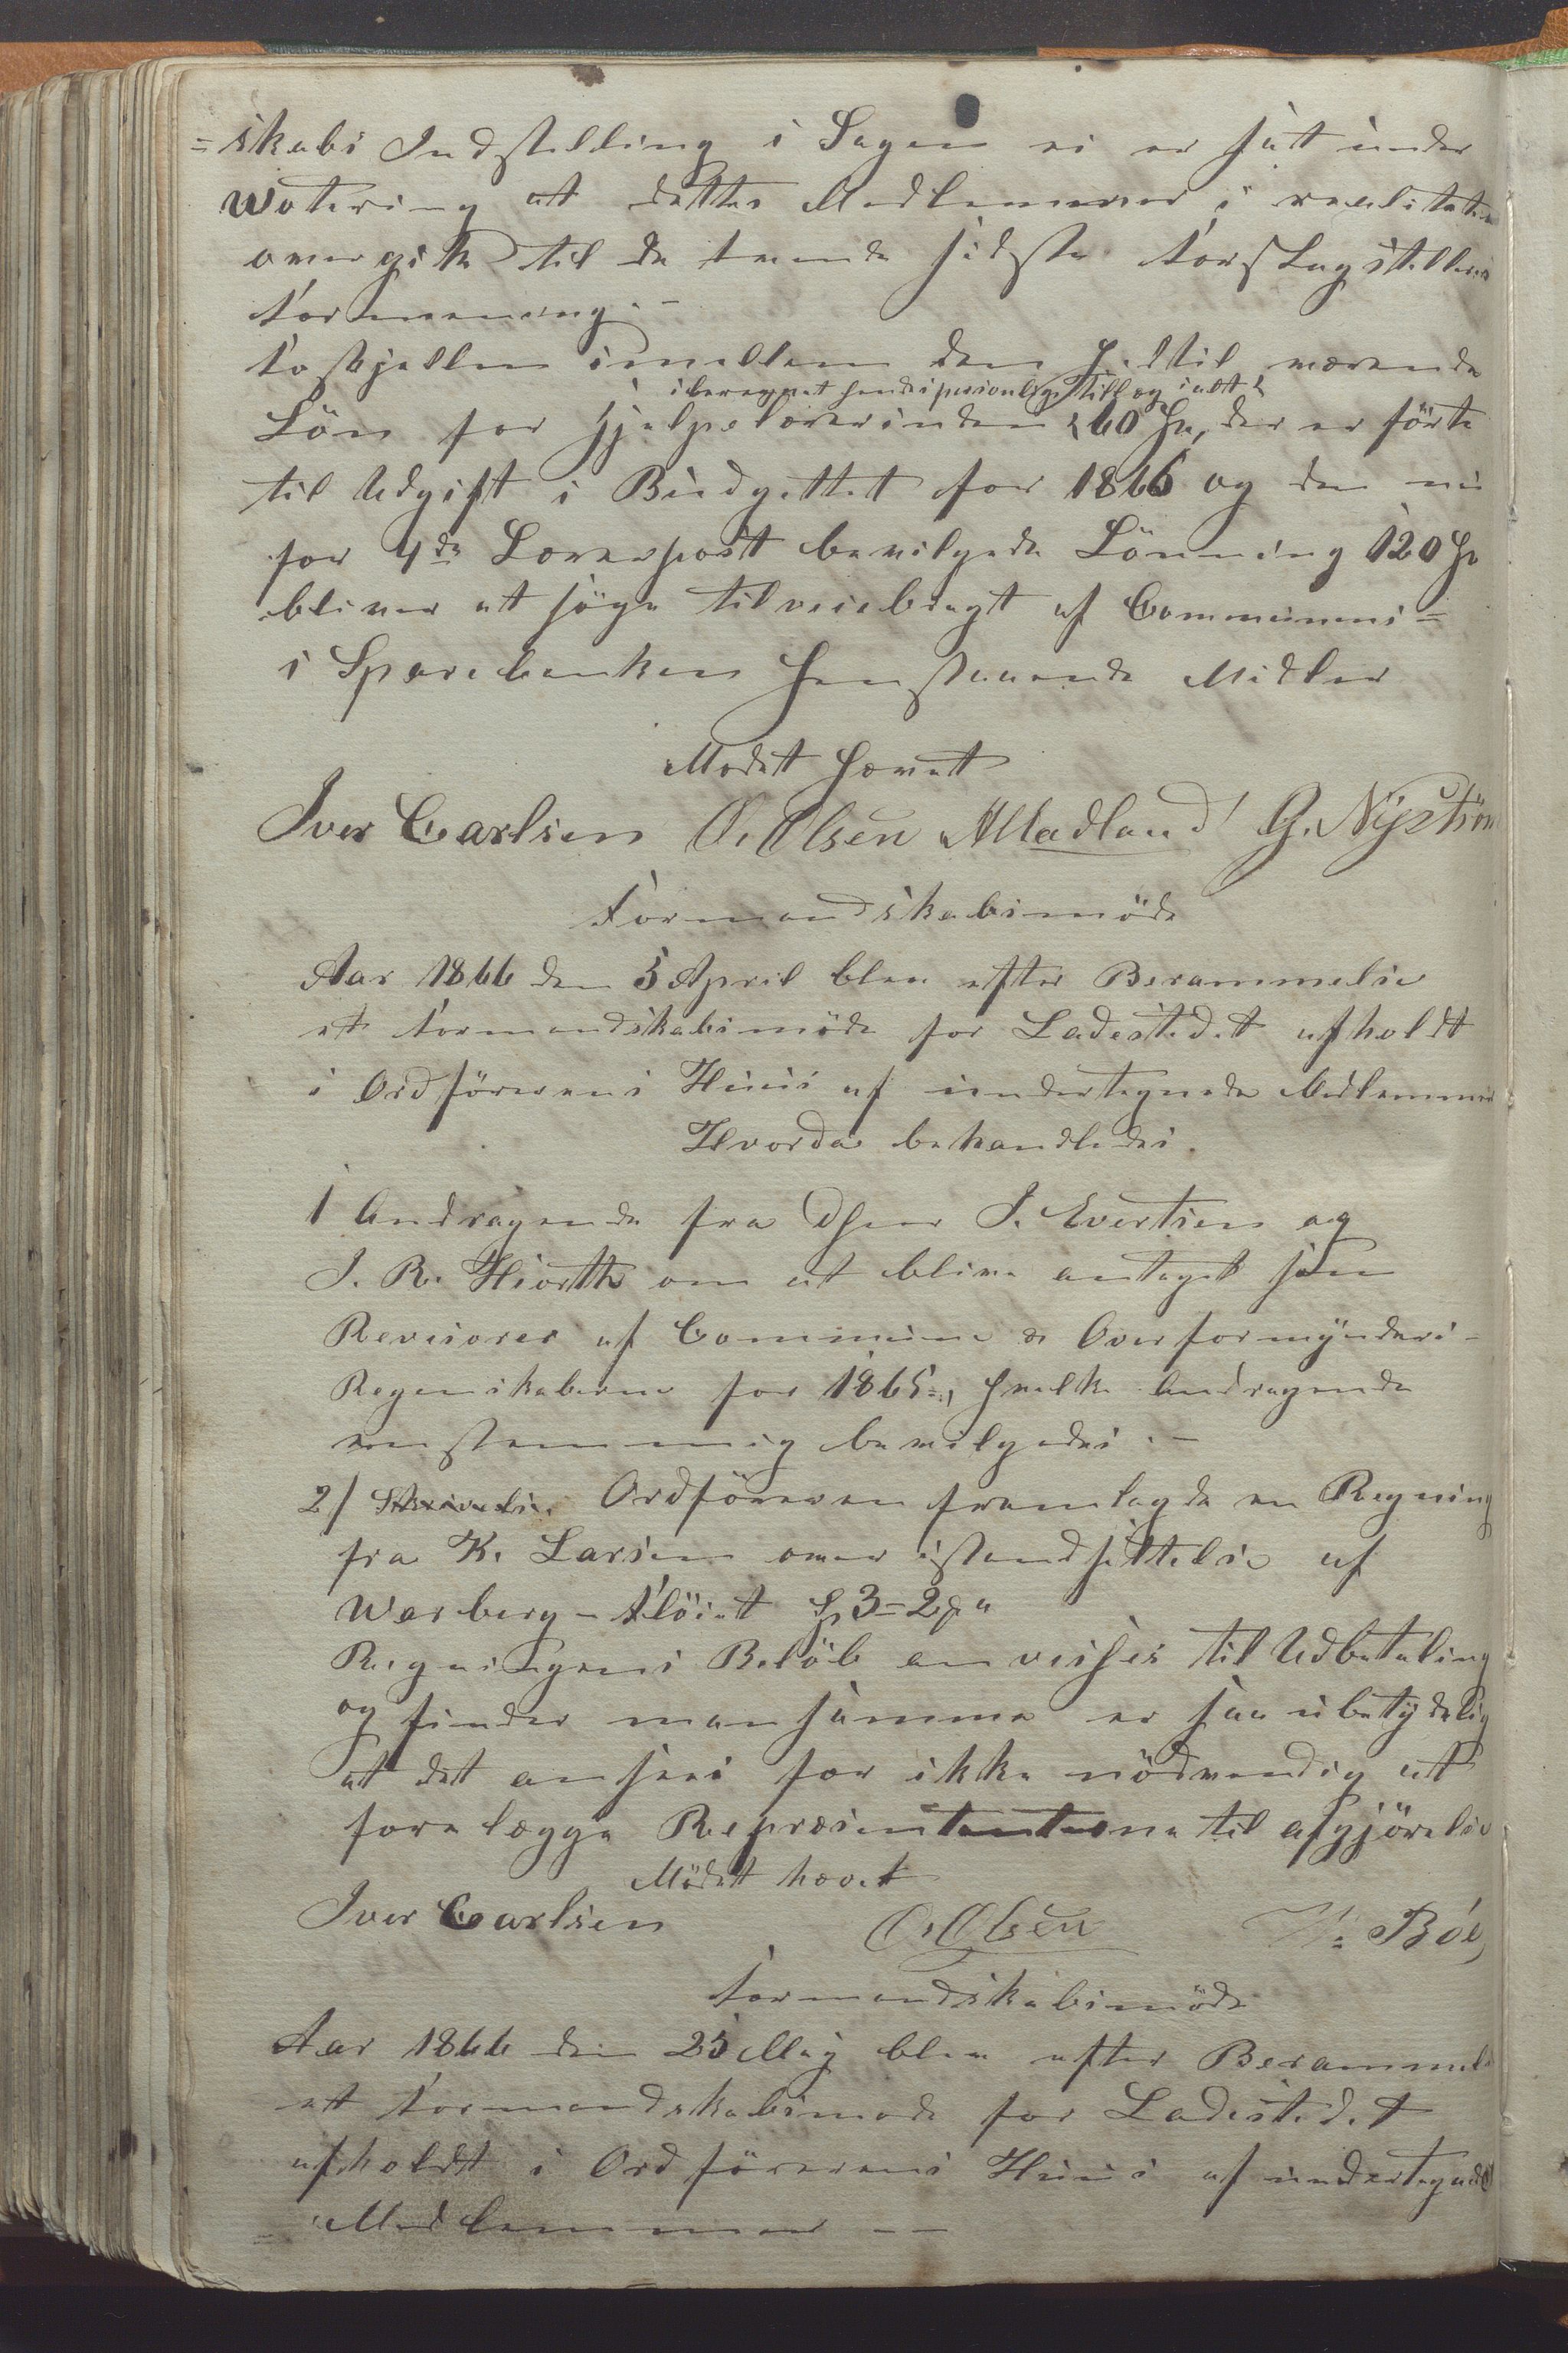 =skabs Indstilling i Sagen ei er sat under
Wotering at dettes Medlemmer i realiteten
overgik til de tvende sidste Forslagstilleres
Formening. –
Forskjellen imellem den hidtil værende
iberegnet hendes personlige Tillæg ialt
Lön for Hjelpelærerinden 60 Sp, der er förte
til Udgift i Budgettet for 1866 og den nu
for 4de Lærerpost bevilgede Lönning 120 Sp
bliver at söge tilveiebragt af Communens =
i Sparebanken henstaaende Midler
Modet hævet
Iver Carlsen O. Olsen AMadland G. Nyström
Formandskabsmöde
Aar 1866 den 5 April blev efter Berammelse
et Formandskabsmöde for Ladestedet afholdt
i Ordförerens Huus af undertegnede Medlemmer
Hvorda behandledes.
1 Andragende fra Dhrr J. Evertsen og
J. R. Hiorth om at blive antaget som
Revisorer af Commune & Overformynderi-
Regnskaberne for 1865, hvilke Andragende
eenstemmig bevilgedes. –
2/ Ordföreren fremlagde en Regning
fra K. Larsen over istandsættelse af
Warberg-Flöiet Sp 3=2
Regningens Belöb anvises til Udbetaling
og finder man samme er saa ubetydelig
at det ansees for ikke nödvendig at
forelægge Repræsentanterne til afgjörelse
Mödet hævet
Iver Carlsen O. Olsen Böe
Formandskabsmöde
Aar 1866 den 25 May blev efter Berammel
et Formandskabsmode for Ladestedet
afholdt i Ordförerens Huus af undertegnede
Medlemmer – –